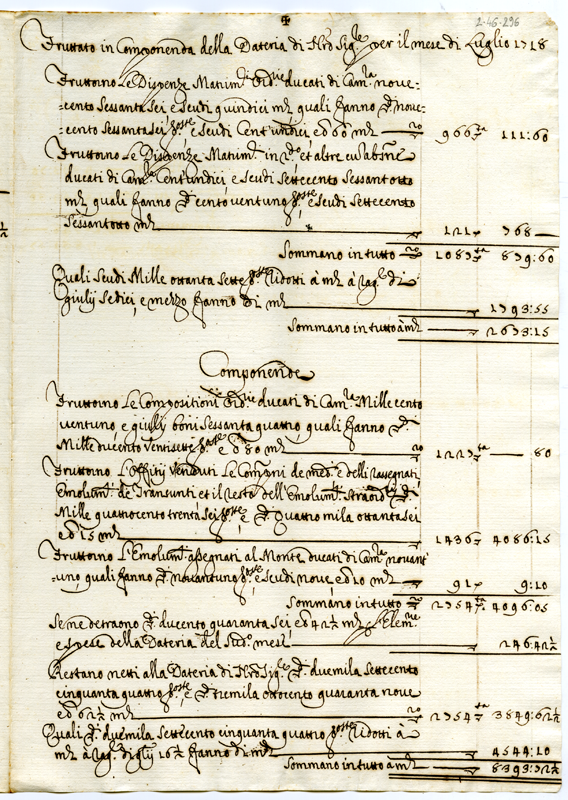 2-46-296
Fruttato in Componenda della Dateria di Nro Sigre per il mese di Luglio 1718
Fruttorno Le Dispenze Matrimli Ordrie ducati di Camra nove=
=cento Sessanta Sei e Scudi quindici mta quali fanno di nove=
=cento Sessanta Sei e Scudi Cent'undici ed 60 mta 966 111:60
Fruttorno Le Dispenze Matrimli in et altre
ducati di Camra Cent'undici, e Scudi Settecento Sessantotto
mta quali fanno cento ventuno e Scudi Settecento
Sessantotto mta 121 768
Sommano in tutto 1087 879:60
Quali Scudi Mille ottanta Sette ridotti à mta à ragne di
giulij Sedici, e mezzo fanno di mta 1793:55
Sommano in tutto à mta 2673:15
Componende
Fruttorno Le Compositioni Ordrie ducati di Camra Mille cento
ventuno e giulij boni Sessanta quattro quali fanno
Mille ducento Ventisette e 80 mta 1227 80
Fruttorno L'Offitij Venduti Le Componi de med. e delli rassegnati
Emolumti de Transunti et il resto dell'Emolumto Straordrio
Mille quattrocento trenta Sei e quattro mila ottantasei
ed 15 mta 1436 4086:15
Fruttorno L'Emolumti assegnati al Monte ducati di Camra novant'
=uno, quali fanno novantuno e Scudi nove ed 10 mta 91 9:10
Sommano in tutto 2754 4096:05
Se ne detraono ducento quaranta Sei ed 42½ mta Elemne
e spese della Dateria del Sudo mese 246:42½
Restano netti alla Dateria di Nro Sigre duemila Settecento
cinquanta quattro e tremila ottocento quaranta nove
ed 62½ mta 2754 3849:62½
Quali duemila Settecento cinquanta quattro ridotti à
mta à ragne di glij 16½ fanno di mta 4544:10
Sommano in tutto à mta 8393:72½
½